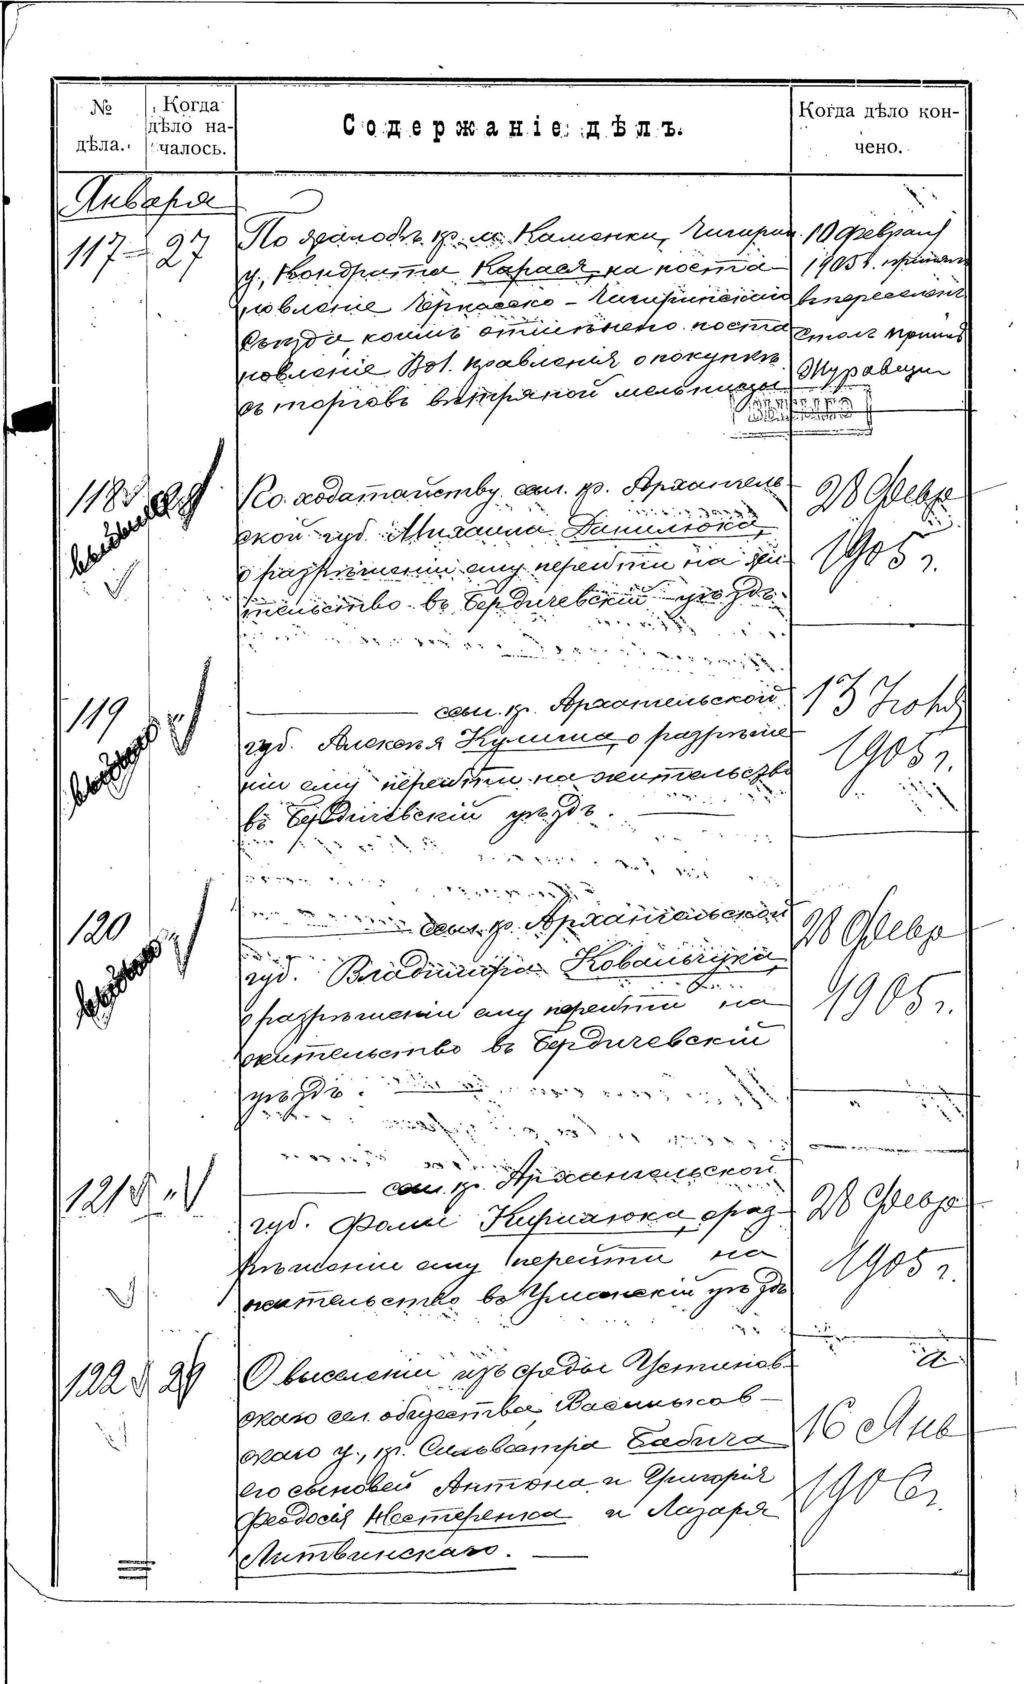 № дѣла.
Когда дѣло началось.
Содержаніе дѣлъ.
Когда дѣло кончено.
Января
117 27
По жалобѣ кр. м. Каменки, Чигирин.
у., Кондрата Карася, на поста-
новленіе Черкасско-Чигиринскаго
Съѣзда, коимъ отмѣнено поста
новленіе Вол. правленія о покупкѣ
съ торговъ вѣтряной мельницы
10 Февраля
1905 г. принято
въ переселен.
столъ
118 выдано
Ко ходатайству ссыл. кр. Архангель-
ской губ. Михаила Данилюка,
о разрѣшеніи ему перейти на жи-
тельство въ Бердичевскій уѣздъ.
28 Февр
1905 г.
119 "
выдано
ссыл. кр. Архангельской
губ. Алексѣя Кулиша, о разрѣше
ніи ему перейти на жительство
въ Бердичевскій уѣздъ.
13
1905 г.
120 "
выдано
ссыл. кр. Архангельской
губ. Владиміра Ковальчука,
о разрѣшеніи ему перейти на
жительство въ Бердичевскій
уѣздъ.
28 Февр
1905 г.
121 "
ссыл. кр. Архангельской
губ. Фомы Кирилюка, о раз-
рѣшеніи ему перейти на
жительство въ Уманскій уѣздъ
28 Февр
1905 г.
122 29
О выселеніи изъ среды Устинов-
скаго сел. общества, Васильков-
скаго у., кр. Сильвестра Бабича
его сыновей Антона и Григорія
Феодосія Нестеренка и Лазаря
Литвинскаго.
16 Янв
1906 г.